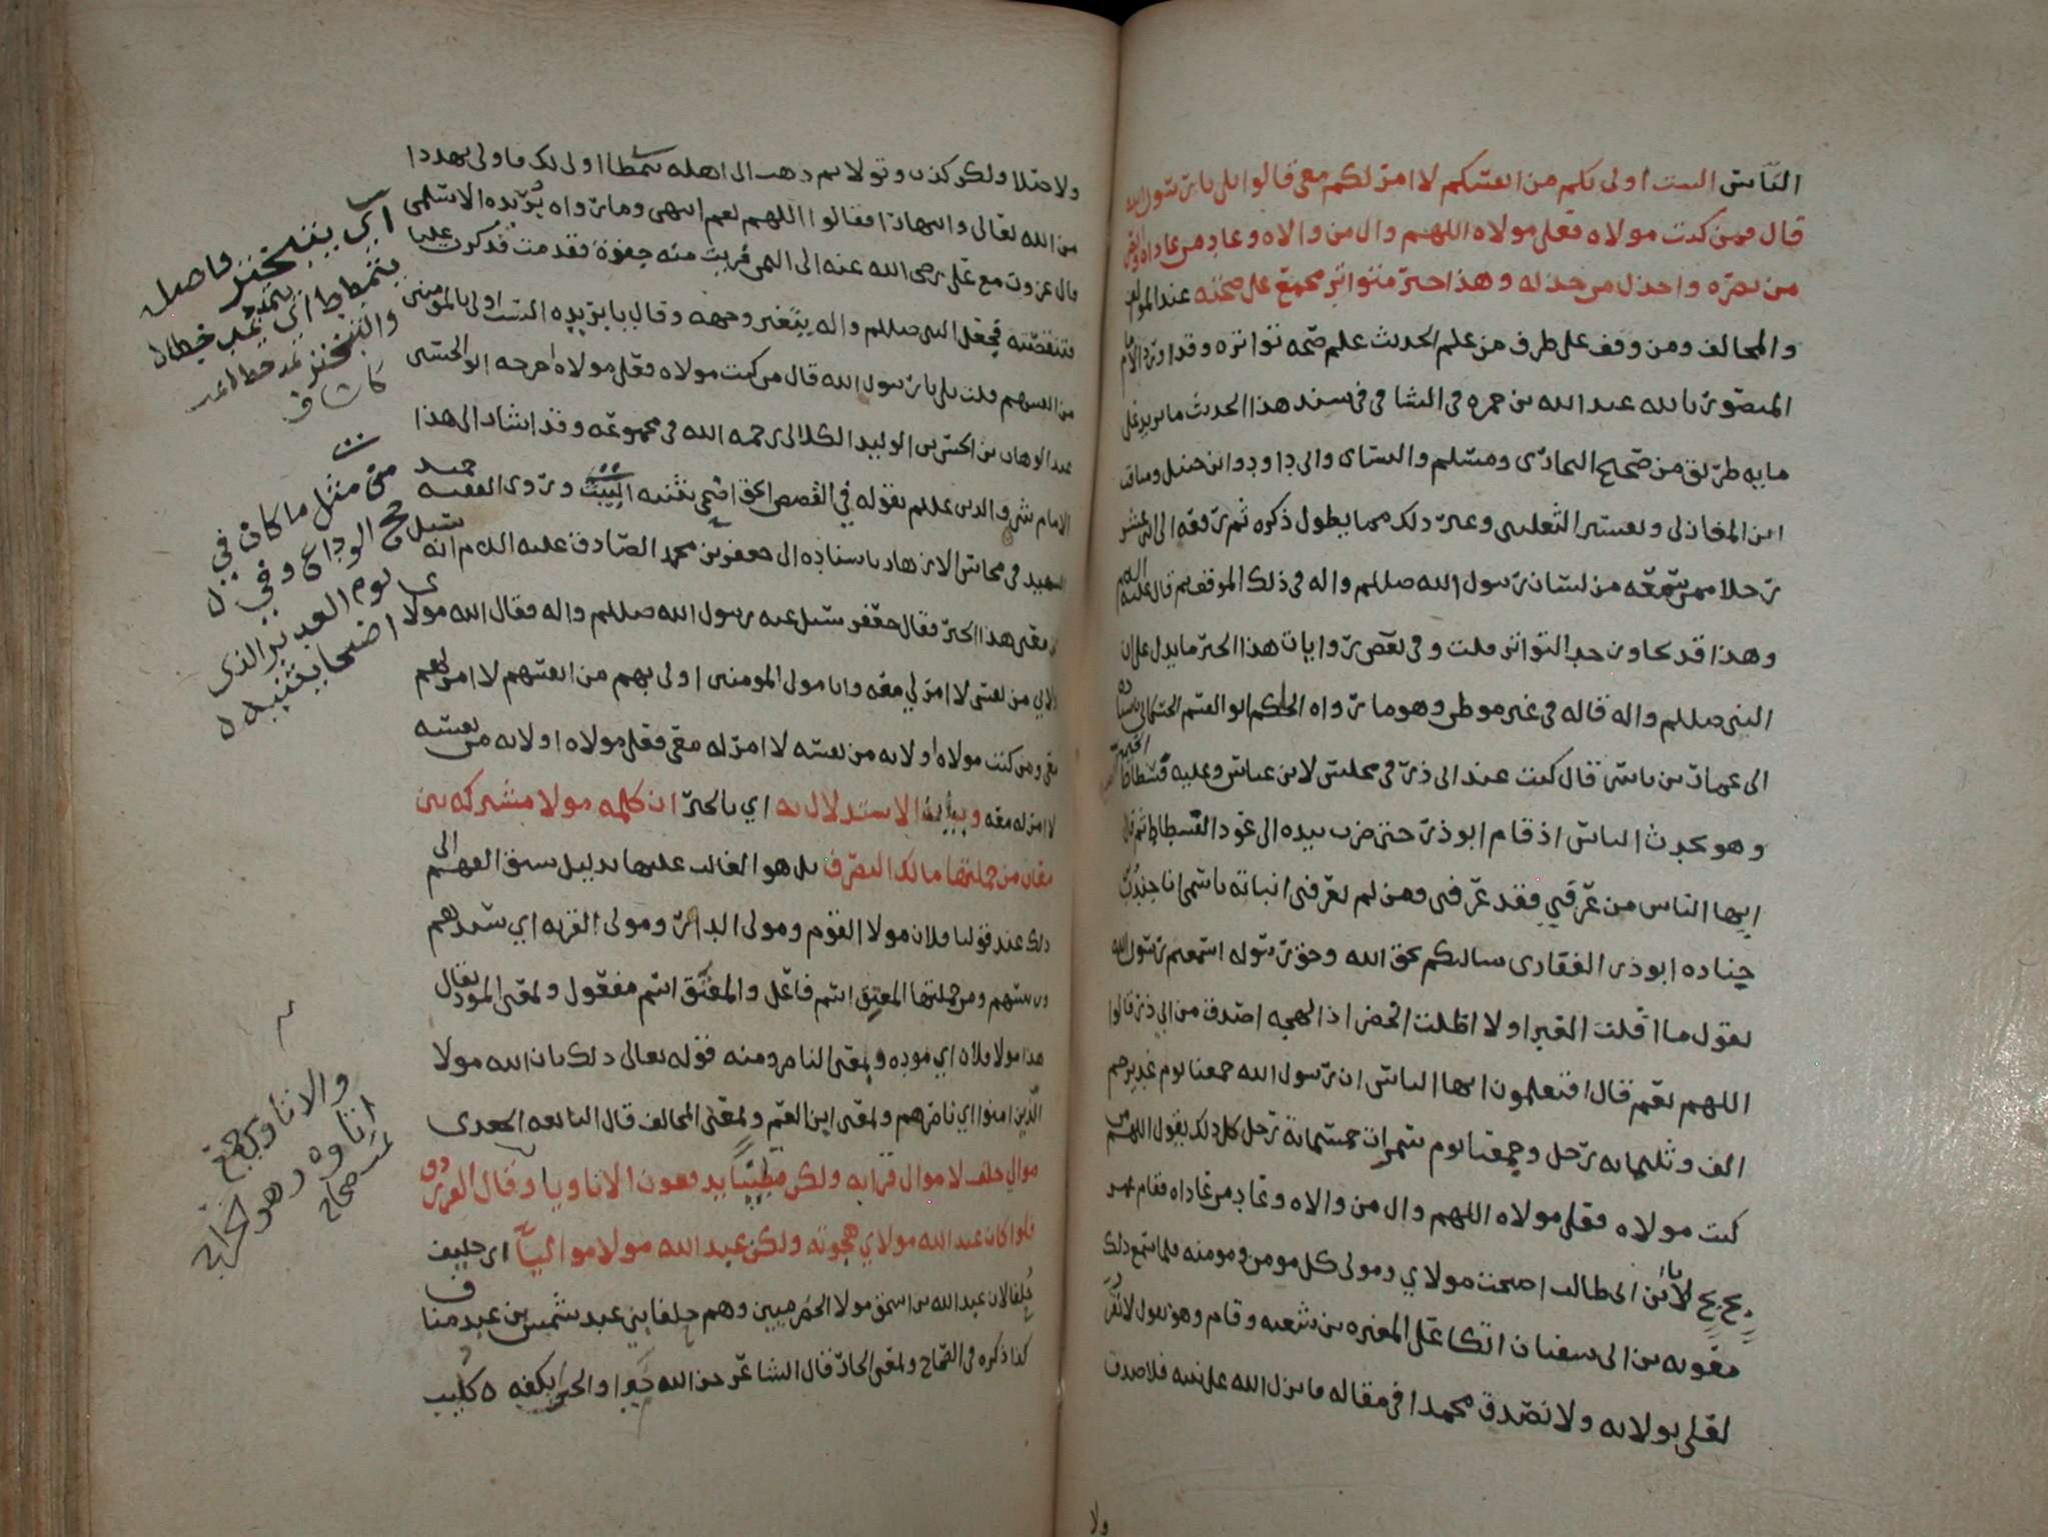 الناس الست اولى بكم من انفسكم لا امر لكم معي قالوا بلى يا رسول الله
قال فمن كنت مولاه فعلي مولاه اللهم وال من والاه وعاد من عاداه وانصر
من نصره واخذل من خذله وهذا خبر متواتر مجمع على صحته عند الموالف
والمخالف ومن وقف على طرف من علم الحديث علم صحة تواتره وقد اورد الامام
المنصور بالله عبد الله بن حمزه في الشافي في سند هذا الحديث ما يزيد على
مايه طريق من صحيح البخاري ومسلم والنسائي وابي داود وابن حنبل ومناقب
ابن المغازلي وتفسير الثعلبي وغير ذلك مما يطول ذكره ثم رفعه الى اثني عشر
رجلا ممن سمعه من لسان رسول الله صللم واله في ذلك الموقف ثم قال عليه السلم
وهذا قد تجاوز حد التواتر قلت وفي بعض روايات هذا الخبر ما يدل على ان
النبي صللم واله قاله في غير موطن وهو ما رواه الحاكم ابو القسم الحسكاني باسناده
الى عمار بن ياسر قال كنت عند ابي ذر في مجلس لابن عباس وعليه فسطاط
وهو يحدث الناس اذ قام ابو ذر حتى ضرب بيده الى عمود الفسطاط ثم قال
ايها الناس من عرفني فقد عرفني ومن لم يعرفني انباته باسمي انا جندب
جناده ابو ذر الغفاري سالتكم بحق الله وحق رسوله اسمعتم رسول الله
يقول ما اقلت الغبرا ولا اظلت الخضرا ذا لهجه اصدق من ابي ذر قالوا
اللهم نعم قال افتعلمون ايها الناس ان رسول الله جمعنا يوم غدير خم
الف وثلثمايه رجل وجمعنا يوم سمرات خمسمائة رجل كل ذلك يقول اللهم من
كنت مولاه فعلي مولاه اللهم وال من والاه وعاد من عاداه فقام عمر
بخ بخ لك يا ابن ابي طالب اصبحت مولاي ومولى كل مومن ومومنه فلما سمع ذلك
معويه بن ابي سفيان اتكا على المغيره بن شعبه وقام وهو يقول لا نقر
لعلي بولايه ولا نصدق محمدا في مقاله فانزل الله على نبيه فلا صدق
ولا
ولا صلى ولكن كذب وتولى ثم ذهب الى اهله يتمطى اولى لك فاولى تهددا
من الله تعالى وانتهارا فقالوا اللهم نعم انتهى وما رواه بريده الاسلمي
قال غزوت مع علي رضى الله عنه الى اليمن فريت منه جفوة فقدمت فذكرت عليا
فتنقصته فجعل النبي صللم واله يتغير وجهه وقال يا بريده الست اولى بالمومنين
من انفسهم قلت بلى يا رسول الله قال من كنت مولاه فعلي مولاه اخرجه ابو الحسين
عبد الوهاب بن الحسن بن الوليد الكلابي رحمه الله في مجموعه وقد اشار الى هذا
الامام شرف الدين عللم بقوله في القصص الحق اضحى بثنيه البيت وروى الفقيه حميد
الشهيد في محاسن الازهار باسناده الى جعفر بن محمد الصادق عليه السلام انه سئل
عن معنى هذا الخبر فقال جعفر سئل عنه رسول الله صللم واله فقال الله مولاي
اولى بي من نفسي لا امر لي معه وانا مولى المومنين اولى بهم من انفسهم لا امر لهم
معي ومن كنت مولاه اولى به من نفسه لا امر له معي فعلي مولاه اولى به من نفسه
لا امر له معه وبيان الاستدلال به اي بالخبر ان كلمه مولا مشتركه بين
معان من جملتها مالك التصرف بل هو الغالب عليها بدليل سبق الفهم الى
ذلك عند قولنا فلان مولا القوم ومولى الدار ومولى القريه اي سيدهم
ورئيسهم ومن جملتها المعتِق اسم فاعل والمعتَق اسم مفعول ولمعنى المود يقال
هذا مولا فلان اي موده ولمعنى الناصر ومنه قوله تعالى ذلك بان الله مولا
الذين امنوا اي ناصرهم ولمعنى ابن العم ولمعنى المحالف قال النابغه الجعدي
موالي حلف لا موال قرابه ولكن قطينا يدفعون الاتاويا وقال الفرزدق
فلو كان عبد الله مولاي هجوته ولكن عبد الله مولا مواليا اي حليف
حلفا لان عبد الله بن اسحق مولا الحضرميين وهم حلفا بني عبد شمس بن عبد مناف
كذا ذكره في الصحاح ولمعنى الجار قال الشاعر جزى الله خيرا والجزا بكفه ه كليب
اي يتبختر واصل
يتمطى يتمطط اي يمد خطاه
والتبختر مد خطا
كشاف
متى مثل ما كان في
حج الوداع وفي
يوم الغدير الذي
اضحى بثنيه
والاتاوي جمع
اتاوه وهو خراج
صحاح